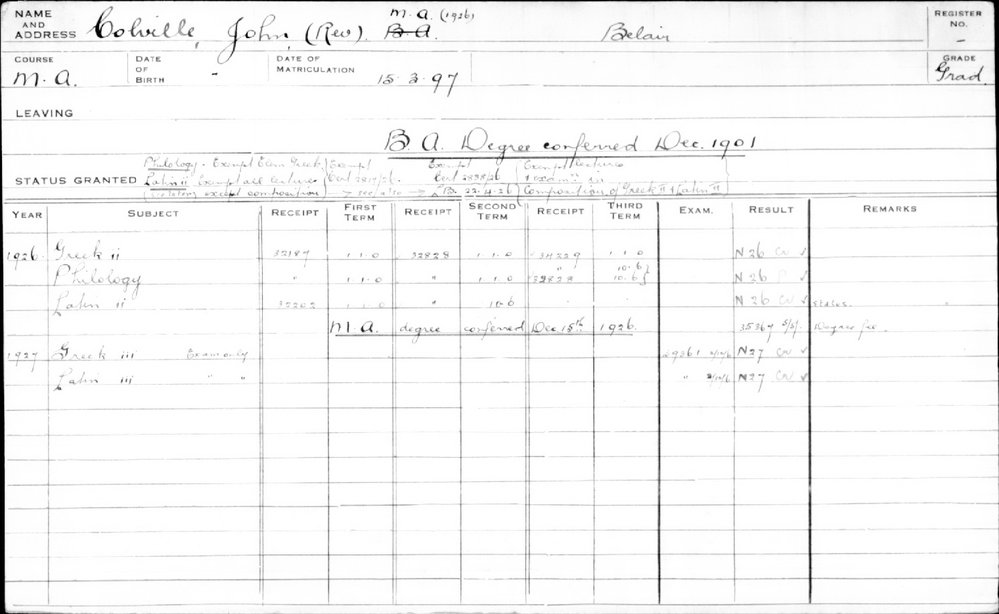 M.A. (1926)
NAME AND ADDRESS Colville, John, (Rev). B.A. Belair REGISTER NO. -
COURSE M.A. DATE OF BIRTH - DATE OF MATRICULATION 15.3.97 GRADE Grad.
LEAVING
B.A. Degree conferred Dec. 1901
Philology. Exempt Elem Greek Exempt Exempt Exempt lectures
STATUS GRANTED Latin II Exempt all lectures Cert 2838/26
except composition see also → 22.4.26 Composition of Greek II & Latin II
YEAR SUBJECT RECEIPT FIRST TERM RECEIPT SECOND TERM RECEIPT THIRD TERM EXAM. RESULT REMARKS
1926. Greek ii 32187 1.1.0 32828 1.1.0 34229 1.1.0 N26 ✓
Philology " 1.1.0 " 1.1.0 " 32828 10.6 10.6 } N26 P ✓
Latin ii 32202 1.1.0 " 10.6 N26 ✓ status.
M.A. degree conferred Dec 15th 1926. 35367 5/5/- Degree fee.
1927 Greek iii Exam only 29361 N27 ✓
Latin iii " " " N27 ✓